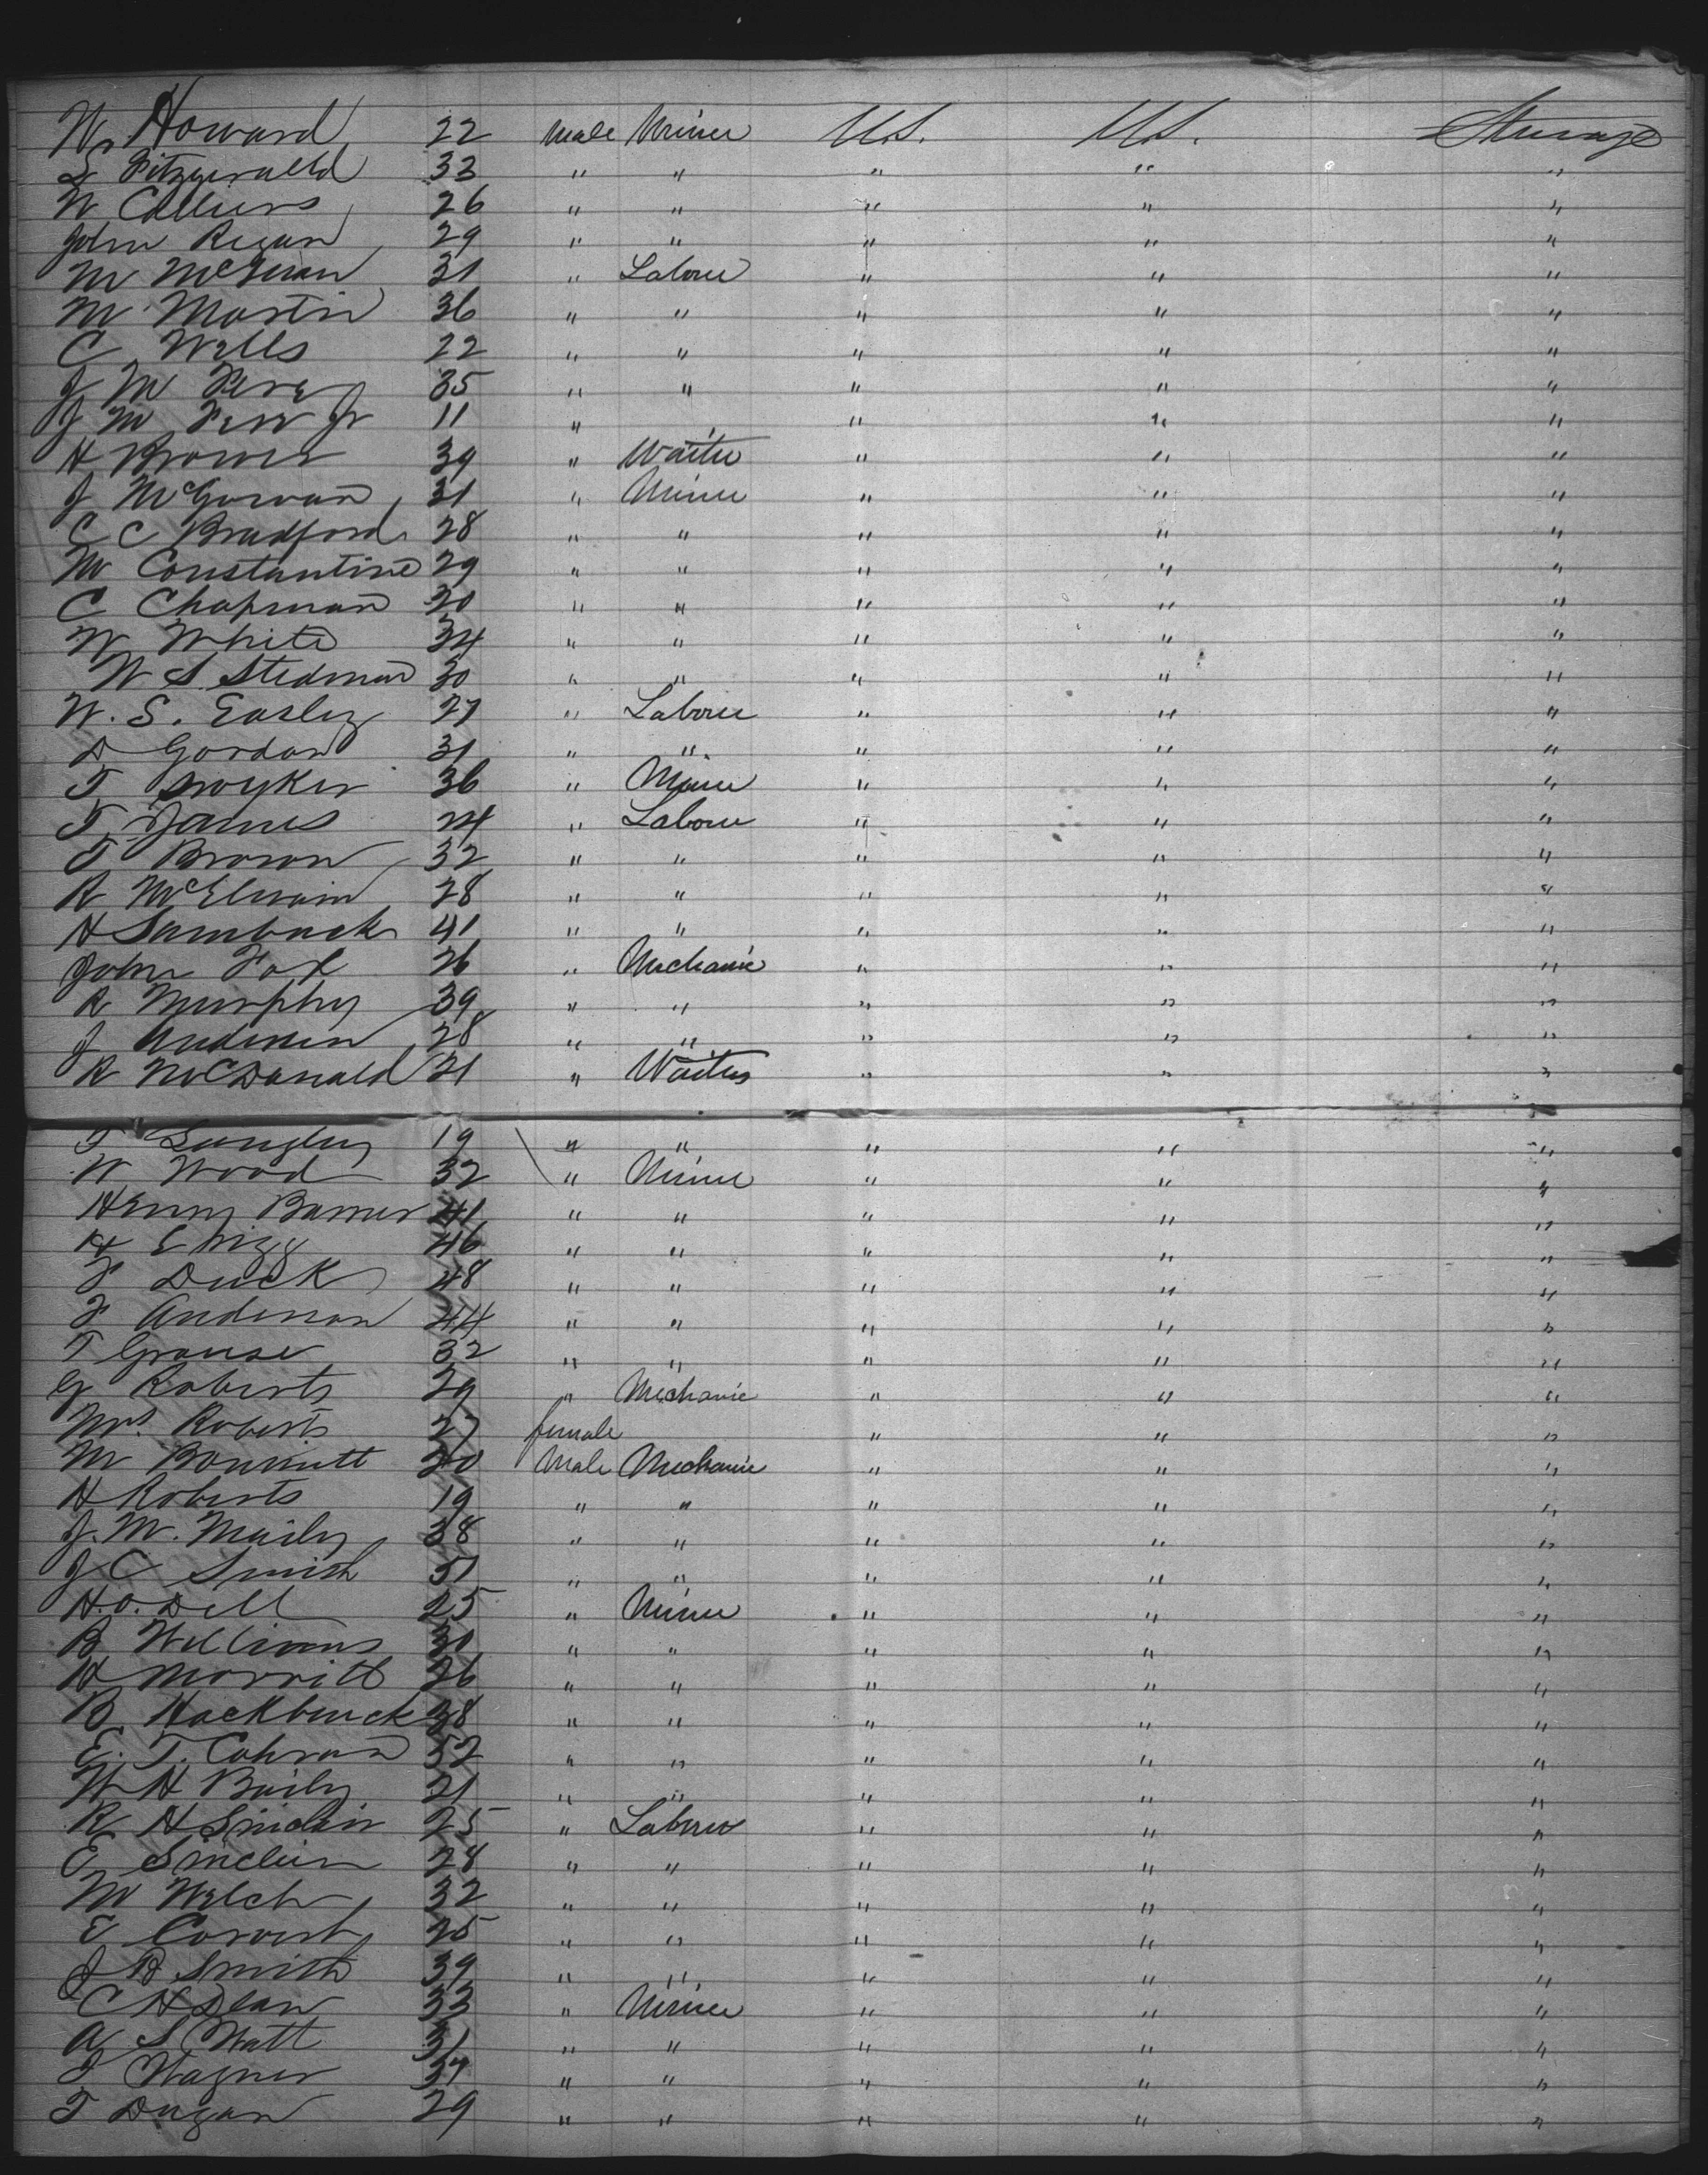 W Howard 22 Male Miner U.S. U.S. Steerage
Fitzgerald 33 " " " " "
W Collins 26 " " " " "
John Regan 29 " " " " "
M 31 " Laborer " " "
M Martin 36 " " " " "
C Wells 22 " " " " "
J M 35 " " " " "
J M Jr 11 " " " "
H Brower 39 " Waiter " " "
J McGowan 31 " Miner " " "
C C Bradford 28 " " " " "
M Constantine 29 " " " " "
C Chapman 30 " " " " "
W White 34 " " " " "
W S Stedman 30 " " " " "
W. S. Easley 27 " Laborer " " "
D Gordon 31 " " " " "
T 36 " Miner " " "
T James 24 " Laborer " " "
T Brown 32 " " " " "
R McElwain 28 " " " " "
H Sambuck 41 " " " " "
John Fox 26 " Mechanic " " "
R Murphy 39 " " " " "
J Anderson 28 " " " " "
R McDonald 21 " Waiter " " "
T Langley 19 " " " " "
W Wood 32 " Miner " " "
Henry 41 " " " " "
H 46 " " " " "
F Duck 48 " " " " "
F Anderson 44 " " " " "
T Grouse 32 " " " " "
G Roberts 29 " Mechanic " " "
Mrs. Roberts 27 female " " "
M 20 Male Mechanic " " "
H Roberts 19 " " " " "
J. M. 38 " " " " "
J C Smith 51 " " " " "
H. O. Dell 25 " Miner " " "
B Williams 30 " " " " "
H Morritt 26 " " " " "
B. Hackbuck 38 " " " " "
E. T. Cohran 52 " " " " "
W H Baily 21 " " " " "
R H Sinclair 25 " Laborer " " "
E Sinclair 28 " " " " "
M Welch 32 " " " " "
E 25 " " " " "
J B Smith 39 " " " " "
C H Dean 33 " Miner " " "
A S Watt 31 " " " " "
J Wagner 37 " " " " "
T Dugan 29 " " " " "